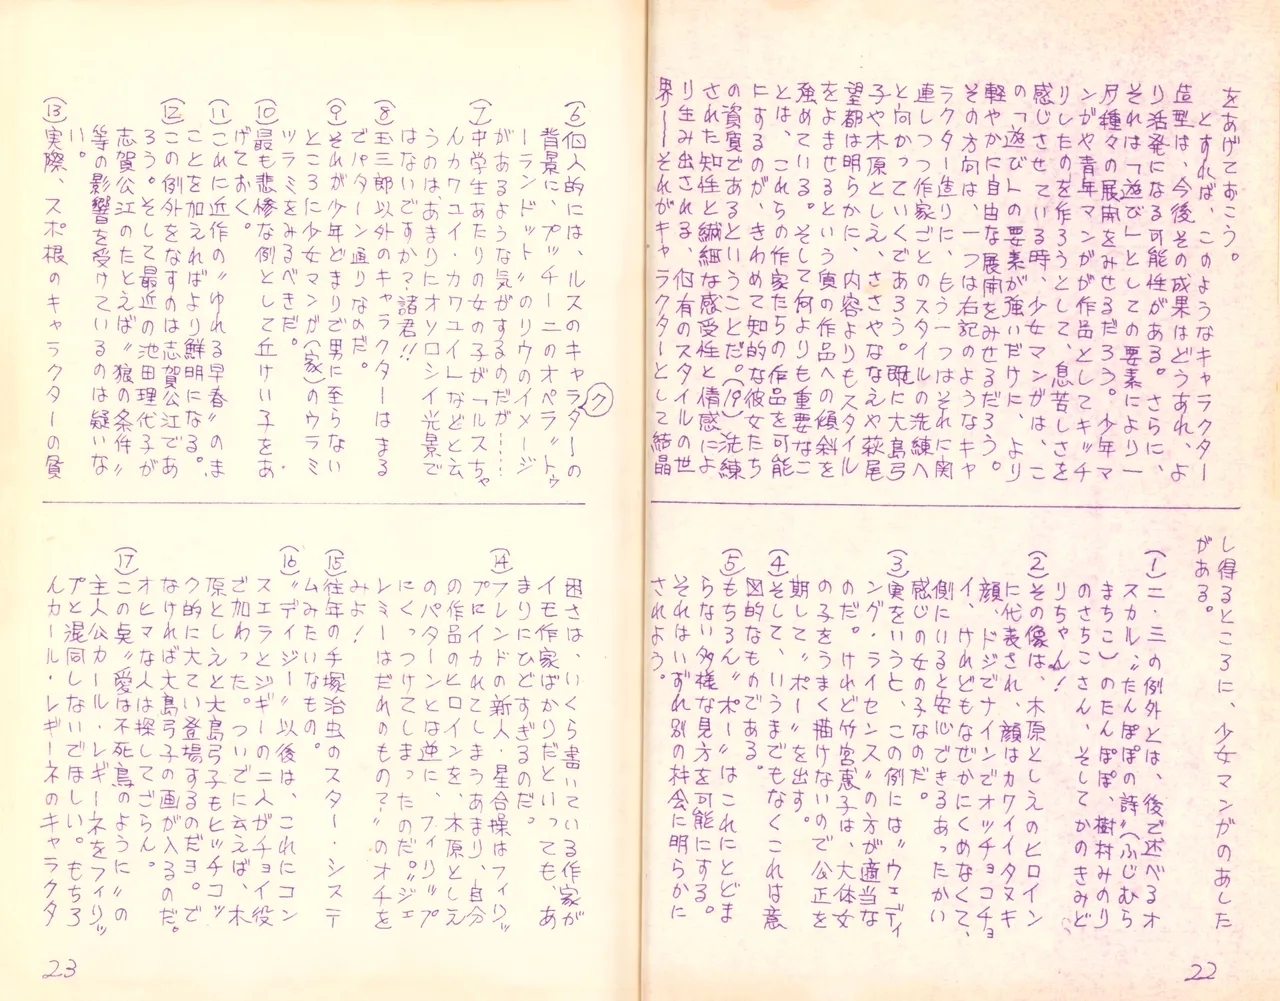 をあげておこう。
とすれば、このようなキャラクター
造型は、今後その成果はどうあれ、よ
り活発になる可能性がある。さらに、
それは「遊び」としての要素により一
層種々の展開をみせるだろう。少年マ
ンガや青年マンガが作品としてキッチ
リしたのを作ろうとして、息苦しさを
感じさせている時、少女マンガは、こ
の「遊び」の要素が強いだけに、より
軽やかに自由な展開をみせるだろう。
その方向は、一つは右記のようなキャ
ラクター造りに、もう一つはそれに関
連しつつ作家ごとのスタイルの洗練へ
と向かっていくであろう。既に大島弓
子や木原としえ、ささやななえや萩尾
望都は明らかに、内容よりもスタイル
をよませるという質の作品への傾斜を
強めている。そして何よりも重要なこ
とは、これらの作家たちの作品を可能
にするのが、きわめて知的な彼女たち
の資質であるということだ。(19)洗練
された知性と繊細な感受性と情感によ
り生み出される、個有のスタイルの世
界——それがキャラクターとして結晶
し得るところに、少女マンガのあした
がある。
(1)二・三の例外とは、後で述べるオ
スカル、〝たんぽぽの詩〟(ふじむら
まちこ)のたんぽぽ、樹村みのり
のさちこさん、そしてかのきみど
りちゃん!
(2)その像は、木原としえのヒロイン
に代表され、顔はカワイイタヌキ
顔、ドジでナインでオッチョコチョ
イ、けれどもなぜかにくめなくて、
側にいると安心できるあったかい
感じの女の子なのだ。
(3)実をいうと、この例には〝ウェディ
ング・ライセンス〟の方が適当な
のだ。けれど竹宮恵子は、大体女
の子をうまく描けないので公正を
期して〝ポー〟を出す。
(4)そして、いうまでもなくこれは意
図的なものである。
(5)もちろん〝ポー〟はこれにとどま
らない多様な見方を可能にする。
それはいずれ別の機会に明らかに
されよう。
22
(6)個人的には、ルスのキャラクターの
背景に、プッチーニのオペラ〝トゥ
ーランドット〟のリウのイメージ
があるような気がするのだが……
(7)中学生あたりの女の子が「ルスちゃ
んカワユイ・カワユイ」などと云
うのは、あまりにオソロシイ光景で
はないですか?諸君!!
(8)玉三郎以外のキャラクターはまる
でパターン通りなのだ。
(9)それが少年どまりで男に至らない
ところに少女マンガ(家)のウラミ
ツラミをみるべきだ。
(10)最も悲惨な例として丘けい子をあ
げておく。
(11)これに近作の〝ゆれる早春〟のま
ことを加えればより鮮明になる。
(12)この例外をなすのは志賀公江であ
ろう。そして最近の池田理代子が
志賀公江のたとえば〝狼の条件〟
等の影響を受けているのは疑いな
い。
(13)実際、スポ根のキャラクターの貧
困さは、いくら書いている作家が
イモ作家ばかりだといっても、あ
まりにひどすぎるのだ。
(14)フレンドの新人・星合操はフィリッ
プにイカれてしまうあまり、自分
の作品のヒロインを、木原としえ
のパターンとは逆に、フィリップ
にくっつけてしまったのだ。〝ジェ
レミーはだれのもの?〟のオチを
みよ!
(15)往年の手塚治虫のスター・システ
ムみたいなもの。
(16)〝デイジー〟以後は、これにコン
スエラとジギーの二人がチョイ役
で加わった。ついでに云えば、木
原としえと大島弓子もヒッチコッ
ク的に大てい登場するのだョ。で
なければ大島弓子の画が入るのだ。
オヒマな人は探してごらん。
(17)この点〝愛は不死鳥のように〟の
主人公カール・レギーネをフィリッ
プと混同しないでほしい。もちろ
んカール・レギーネのキャラクタ
23